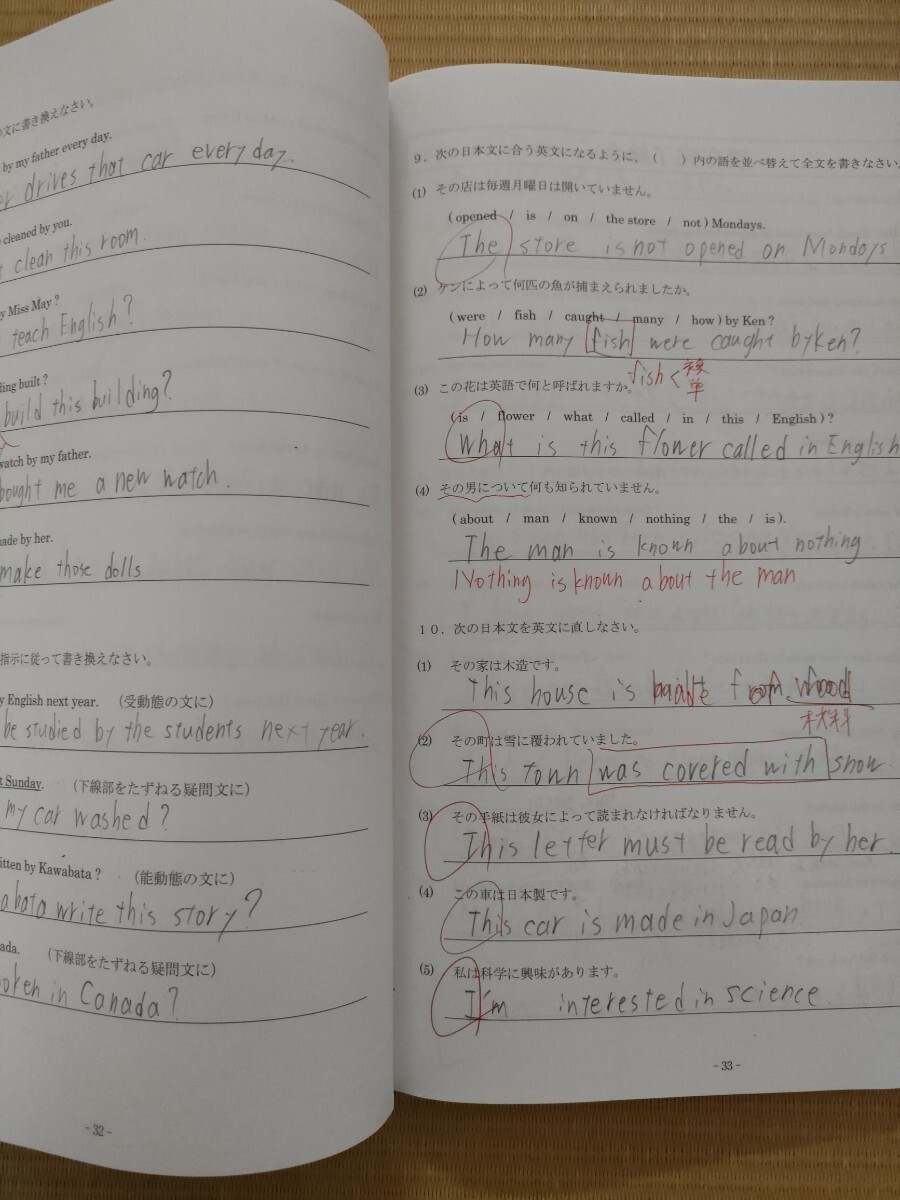 の文に書き換えなさい。
by my father every day.
drives that car every day.
cleaned by you.
clean this room.
y Miss May ?
teach English?
ding built ?
build this building?
watch by my father.
bought me a new watch.
made by her.
make those dolls
指示に従って書き換えなさい。
y English next year. (受動態の文に)
be studied by the students next year.
t Sunday. (下線部をたずねる疑問文に)
my car washed?
itten by Kawabata ? (能動態の文に)
abata write this story?
ada. (下線部をたずねる疑問文に)
oken in Canada?
-32-
9. 次の日本文に合う英文になるように、( )内の語を並べ替えて全文を書きなさい。
(1) その店は毎週月曜日は開いていません。
( opened / is / on / the store / not ) Mondays.
The store is not opened on Mondays
(2) ケンによって何匹の魚が捕まえられましたか。
( were / fish / caught / many / how ) by Ken ?
How many fish were caught by ken?
fish < 複
単
(3) この花は英語で何と呼ばれますか。
( is / flower / what / called / in / this / English ) ?
What is this flower called in English
(4) その男について何も知られていません。
( about / man / known / nothing / the / is ).
The man is known about nothing.
Nothing is known about the man
10. 次の日本文を英文に直しなさい。
(1) その家は木造です。
This house is
wood
材料
(2) その町は雪に覆われていました。
This town was covered with snow.
(3) その手紙は彼女によって読まれなければなりません。
This letter must be read by her.
(4) この車は日本製です。
This car is made in Japan.
(5) 私は科学に興味があります。
I'm interested in science.
-33-